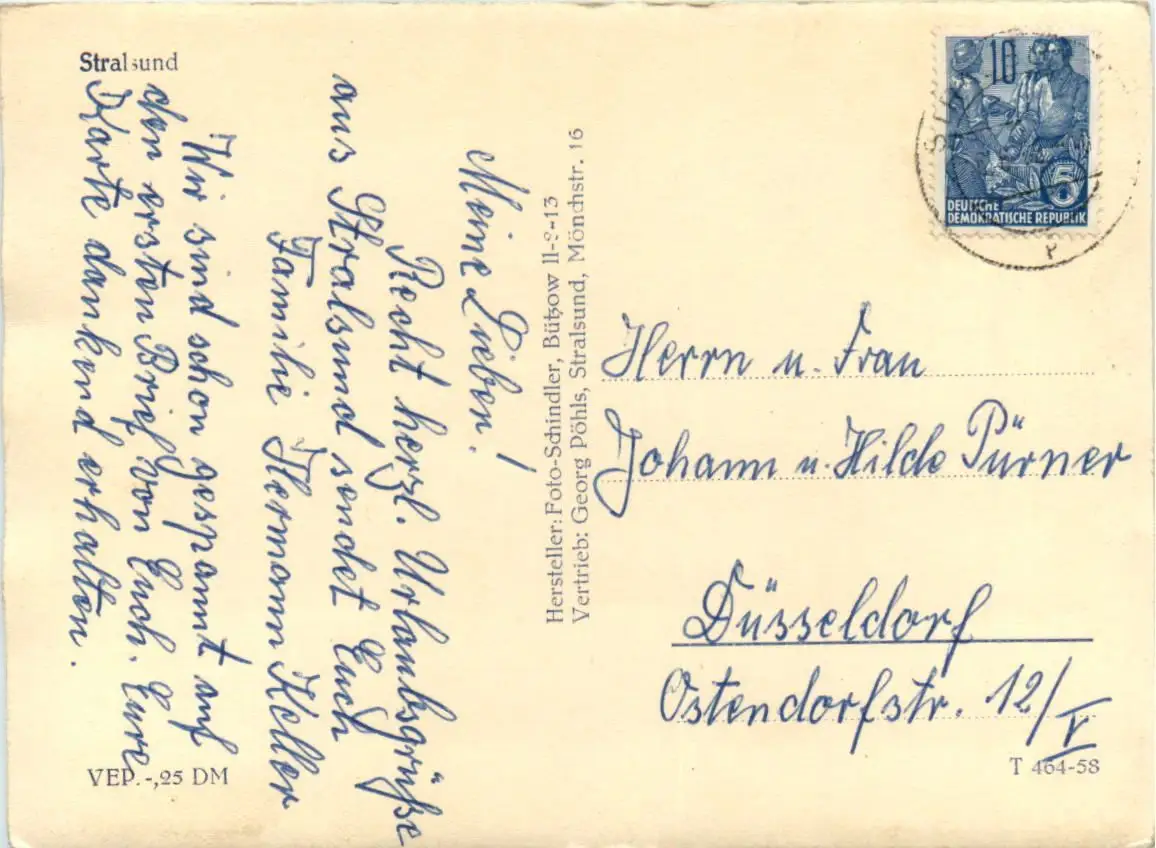 Stralsund
Meine Lieben!
Recht herzl. Urlaubsgrüße
aus Stralsund sendet Euch
Familie Hermann Keller
Wir sind schon gespannt auf
den ersten Brief von Euch. Eure
Karte dankend erhalten.
VEP. -,25 DM
Hersteller: Foto-Schindler, Bützow II-9-13
Vertrieb: Georg Pöhls, Stralsund, Mönchstr. 16
10
5
DEUTSCHE
DEMOKRATISCHE REPUBLIK
Herrn u. Frau
Johann u. Hilde Pürner
Düsseldorf
Ostendorfstr. 12/I
T 464-58